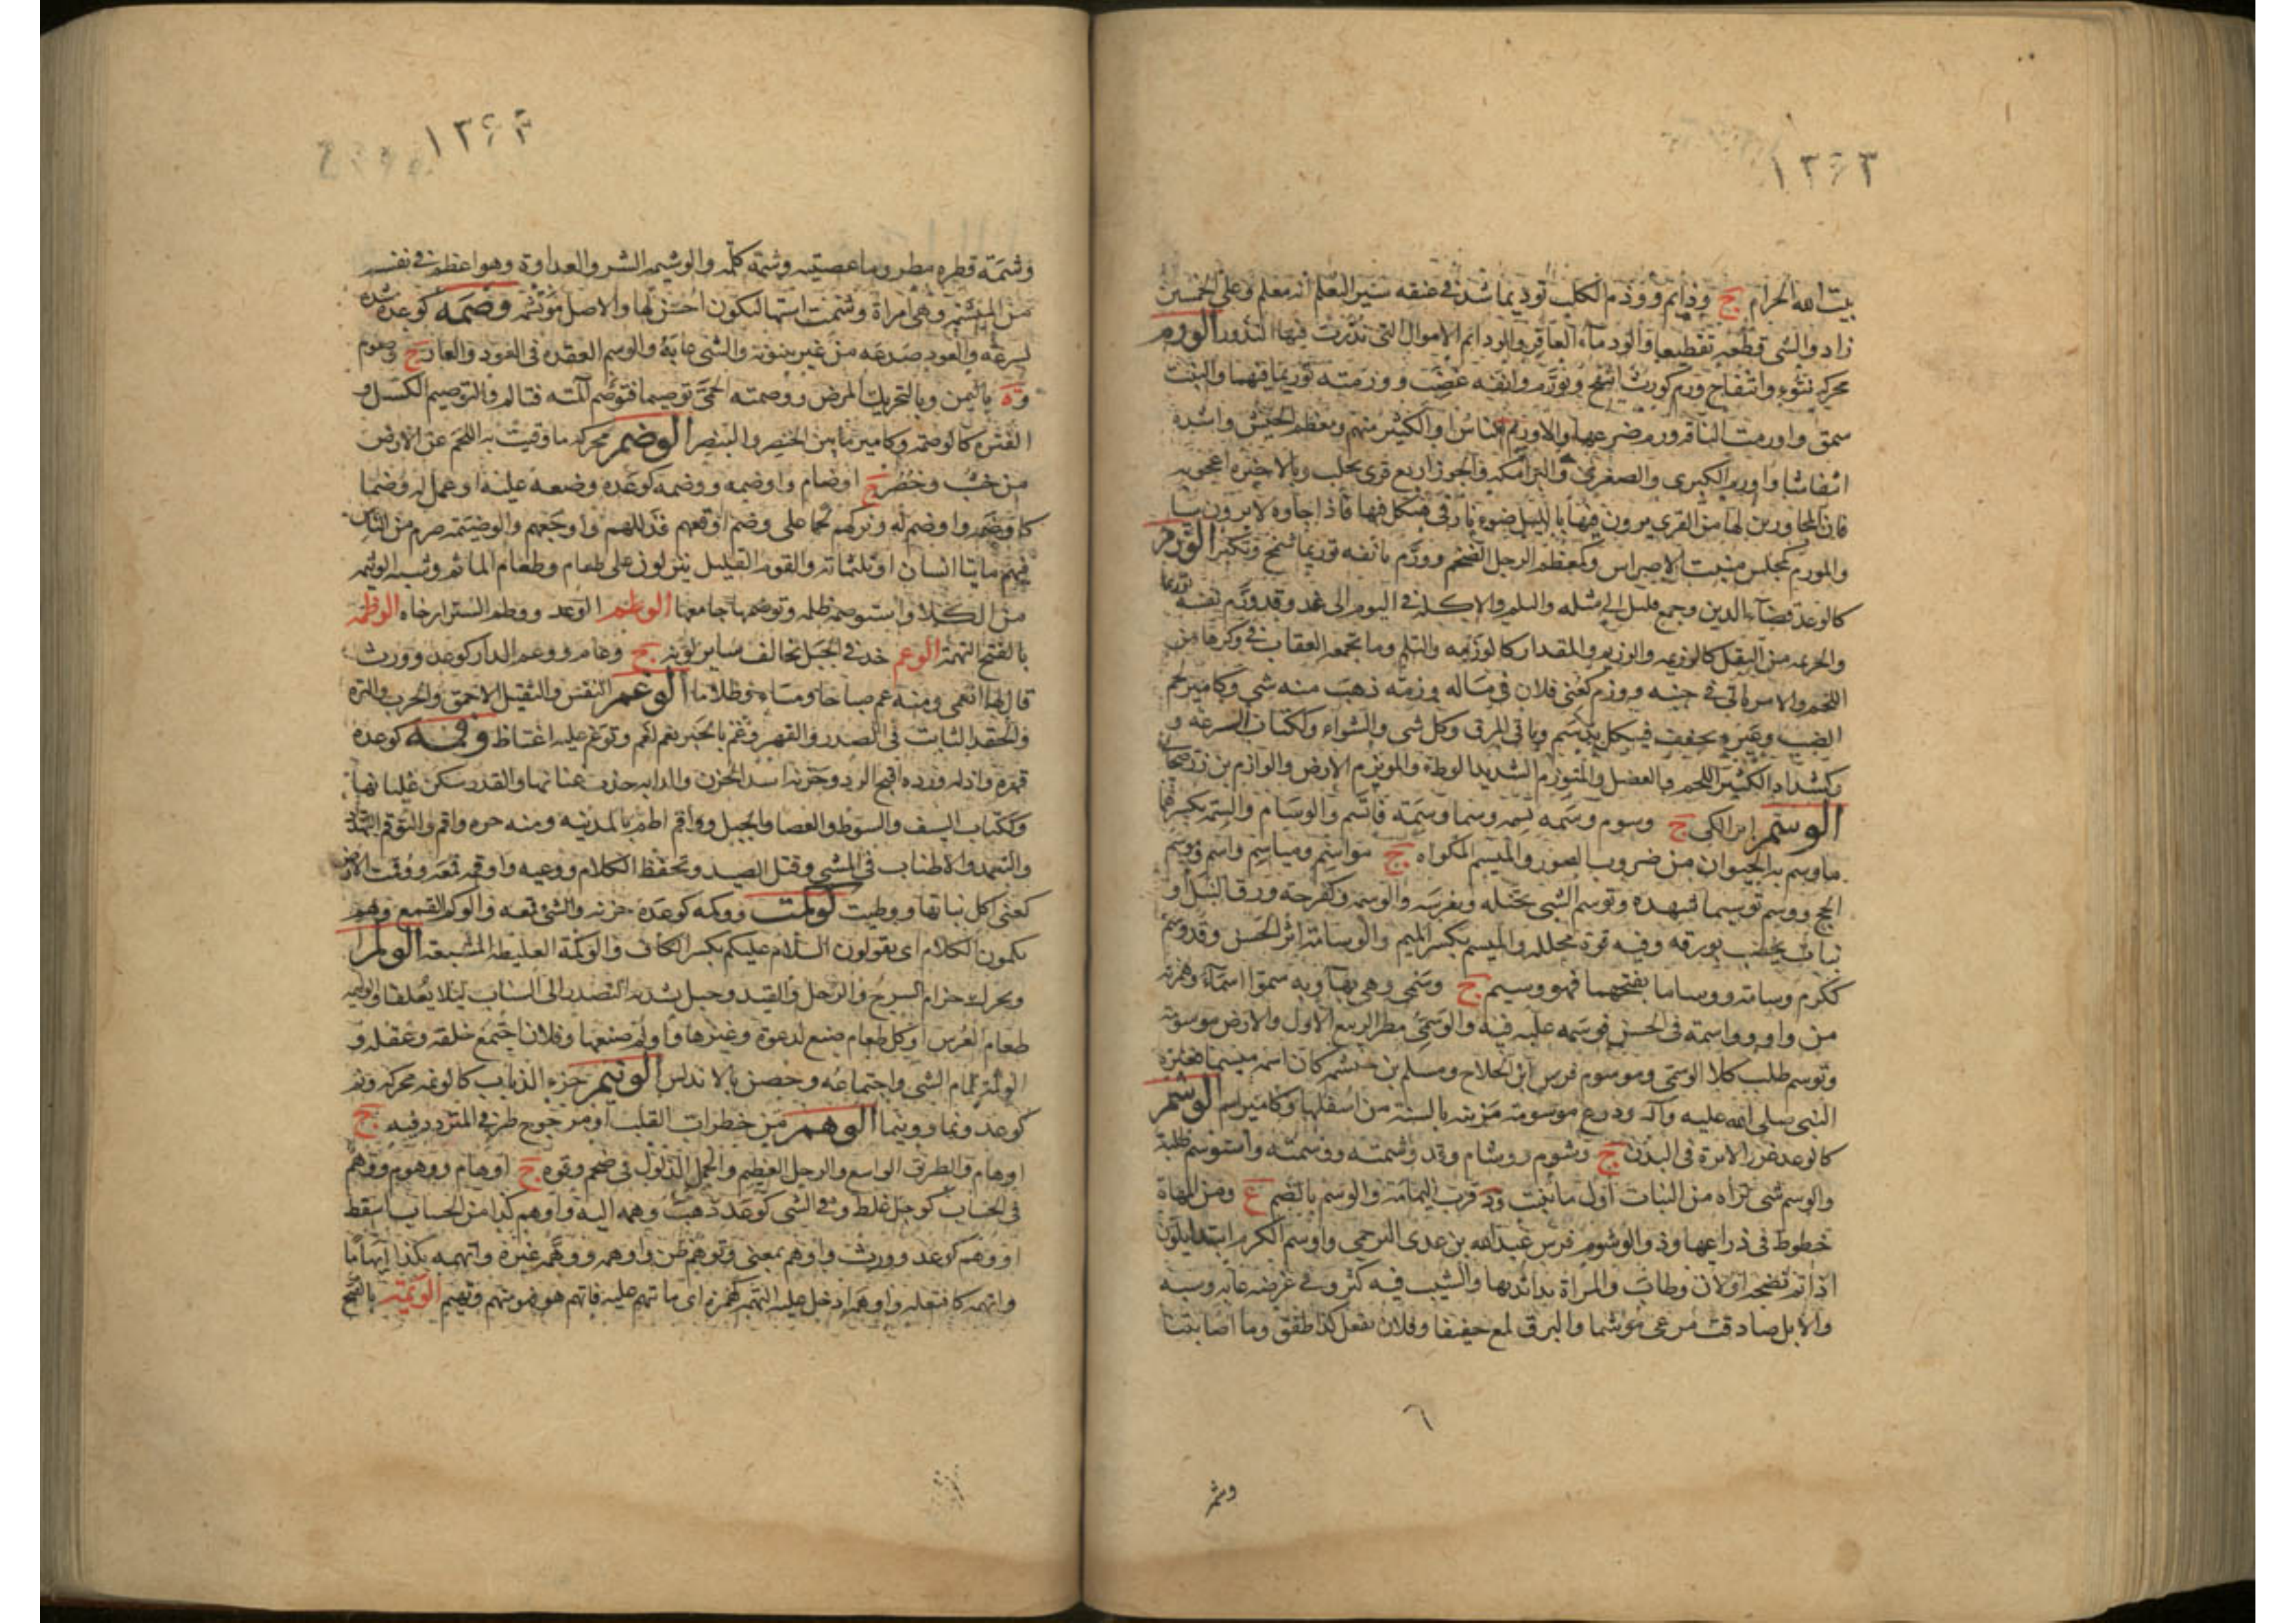 ١٢٤٣
بيت الله الحرام ج وذايم ووذم الكلب توذيما شد في عنقه سير ليعلم انه معلم وعلى الخمسين
زاد والشى قطعه تقطيعا والوذماء العاقر والوذائم الاموال التى نذرت فيها النذور الورم
محركة نتوء وانتفاخ ورم كورث انتفخ وتورم وانفه غضب وورمته توريما فيهما والنبت
سمق واورمت الناقة ورم ضرعها والاورم الناس او الكثير منهم ومعظم الجيش واشده
انتفاشا واورم الكبرى والصغرى والبرامكة والجوز اربع قرى بحلب وبالاخيرة اعجوبة
فان المجاورين لها من القرى يرون فيها بالليل ضوء نار فى هيكل فيها فاذا جاوه لا يرون شيا
والمورم كمجلس منبت الاضراس وكمعظم الرجل الضخم وورم بانفه توريما شمخ وتكبر الوزم
كالوعد قضاء الدين وجمع قليل الى مثله والثلم والاكلة في اليوم الى غد وقد وزم نفسه توزيما
والحزمة من البقل كالوزيمة والوزيم والمقدار كالوزيمة والثلم وما تجمعه العقاب في وكرها من
اللحم والامر ياتى في حينه ووزم كعنى فلان فى ماله وزمة ذهب منه شى وكامير لحم
الضب وغيره يجفف فيؤكل بدسم وباقى المرق وكل شى والشواء وككتاب السرعة و
كشداد الكثير اللحم والعضل والمتوزم الشديد الوطء
الوسم اثر الكى ج وسوم وسمه يسمه وسما وسمة فاتسم والوسام والسمة بكسرهما
ما وسم به الحيوان من ضروب الصور والميسم المكواة ج مواسم ومياسم واسم ووسم
الحج ووسم توسيما شهده وتوسم الشى تخيله وتفرسه والوسمة وكفرحة ورق النيل او
نبات يخضب بورقه وفيه قوة محللة والميسم بكسر الميم والوسامة اثر الحسن وقد وسم
ككرم وسامة ووساما بفتحهما فهو وسيم ج وسمى وهى بهاء وبه سموا اسماء وهمزته
من واو وواسمه فى الحسن فوسمه غلبه فيه والوسمى مطر الربيع الاول والارض موسومة
وتوسم طلب كلا الوسمى وموسوم فرس ابن الجلاح ومسلم بن خيشم كان اسمه ميسما فغيره
النبى صلى الله عليه وآله ودرع موسومة مزينة بالشية من اسفلها وكامير اسم الوشم
كالوعد غرز الابرة فى البدن ج وشوم ووشام وقد وشمته ووشمته واستوشم طلبه
والوشم شى تراه من النبات اول ما ينبت ود قرب اليمامة والوشم بالضم ع ومن المهاة
خطوط فى ذراعيها وذو الوشوم فرس عبدالله بن عدى البرجمى واوشم الكرم ابتدا يلون
اذا تم نضجه او لان وطاب والمراة بدا ثديها والشيب فيه كثر وفي عرضه عابه وسبه
والابل صادقت مرعى موشما والبرق لمع خفيفا وفلان يفعل كذا طفق وما اصابتنا
٦
وشم
١٢٤٣
وشمة قطرة مطر وما عصيته وشمة كلمة والوشيمة الشر والعداوة وهو اعظم في نفسه
من المتشمة وهى امراة وشمت استها ليكون احسن لها والاصل موتشمة وصمه كوعده شده
بسرعة والعود صدعه من غير بينونة والشى عابه والوصم العقدة فى العود والعار ج وصوم
وة باليمن وبالتحريك المرض ووصمته الحمى توصيما فتوصم آلمته فتالم والتوصيم الكسل و
الفترة كالوصمة وكامير ما بين الخنصر والبنصر الوضم محركة ما وقيت به اللحم عن الارض
من خشب وحصير ج اوضام واوضمة ووضمه كوعده وضعه عليه او عمل له وضما
كاوضمه واوضم له وتركهم لحما على وضم اوقعهم فذللهم واوجعهم والوضيمة صرم من الناس
فيهم مايتا انسان او ثلثماته والقوم القليل ينزلون على قوم وطعام الماتم وشبه الوثيمة
من الكلا واستوضمه ظلمه وتوضمها جامعها الوطم الوعد ووطم الستر ارخاه الوظمة
بالفتح التهمة الوعم خد في الجبل يخالف ساير لونه ج وعام ووعم الدار كوعد وورث
قال لها انعمى ومنه عم صباحا ومساء وظلاما الوغم النفس والثقيل الاحمق والحرب والترة
والحقد الثابت فى الصدر والقهر وغم بالخبر يغم لغم وتوغم عليه اغتاظ وقمه كوعده
قهره واذله ورده اقبح الرد وحزنه اشد الحزن والدابة جذب عنانها والقدر سكن غليانها
وككتاب السيف والسوط والعصا والحبل وواقم اطم بالمدينة ومنه حرة واقم والتوقم التهدد
والتعمد والاطناب فى المشى وقتل الصيد وتحفظ الكلام ووعيه واوقمه قمعه ووقمت الارض
كعنى اكل نباتها ووطيت كوكمت ووكمه كوعده حزنه والشى قمعه والوكم القمع وهم
يكمون الكلام اى يقولون السلام عليكم بكسر الكاف والوكمة الغليظة المشبعة الولم
ويحرك حزام السرج والرحل والقيد وحبل يشد من التصدير الى السناف ليلا يقلقا والوليمة
طعام العرس او كل طعام صنع لدعوة وغيرها واولم صنعها وفلان اجتمع خلقه وعقله و
الولمة تمام الشى واجتماعه وحصن بالاندلس الونيم خرء الذباب كالونمة محركة ونم
كوعد ونما وونيما الوهم من خطرات القلب او مرجوح طرفي المتردد فيه ج
اوهام والطريق الواسع والرجل العظيم والجمل الذلول فى ضخم وقوة ج اوهام ووهوم ووهم
فى الحساب كوجل غلط وفي الشى كوعد ذهب وهمه اليه واوهم كذا من الحساب اسقط
او وهم كوعد وورث واوهم بمعنى وتوهم ظن واوهمه ووهمه غيره واتهمه بكذا اتهاما
واتهمه كافتعله واوهمه ادخل عليه التهمة كهمزة اى ما يتهم عليه فاتهم هو فهو متهم وتهيم الوتمة بالفتح